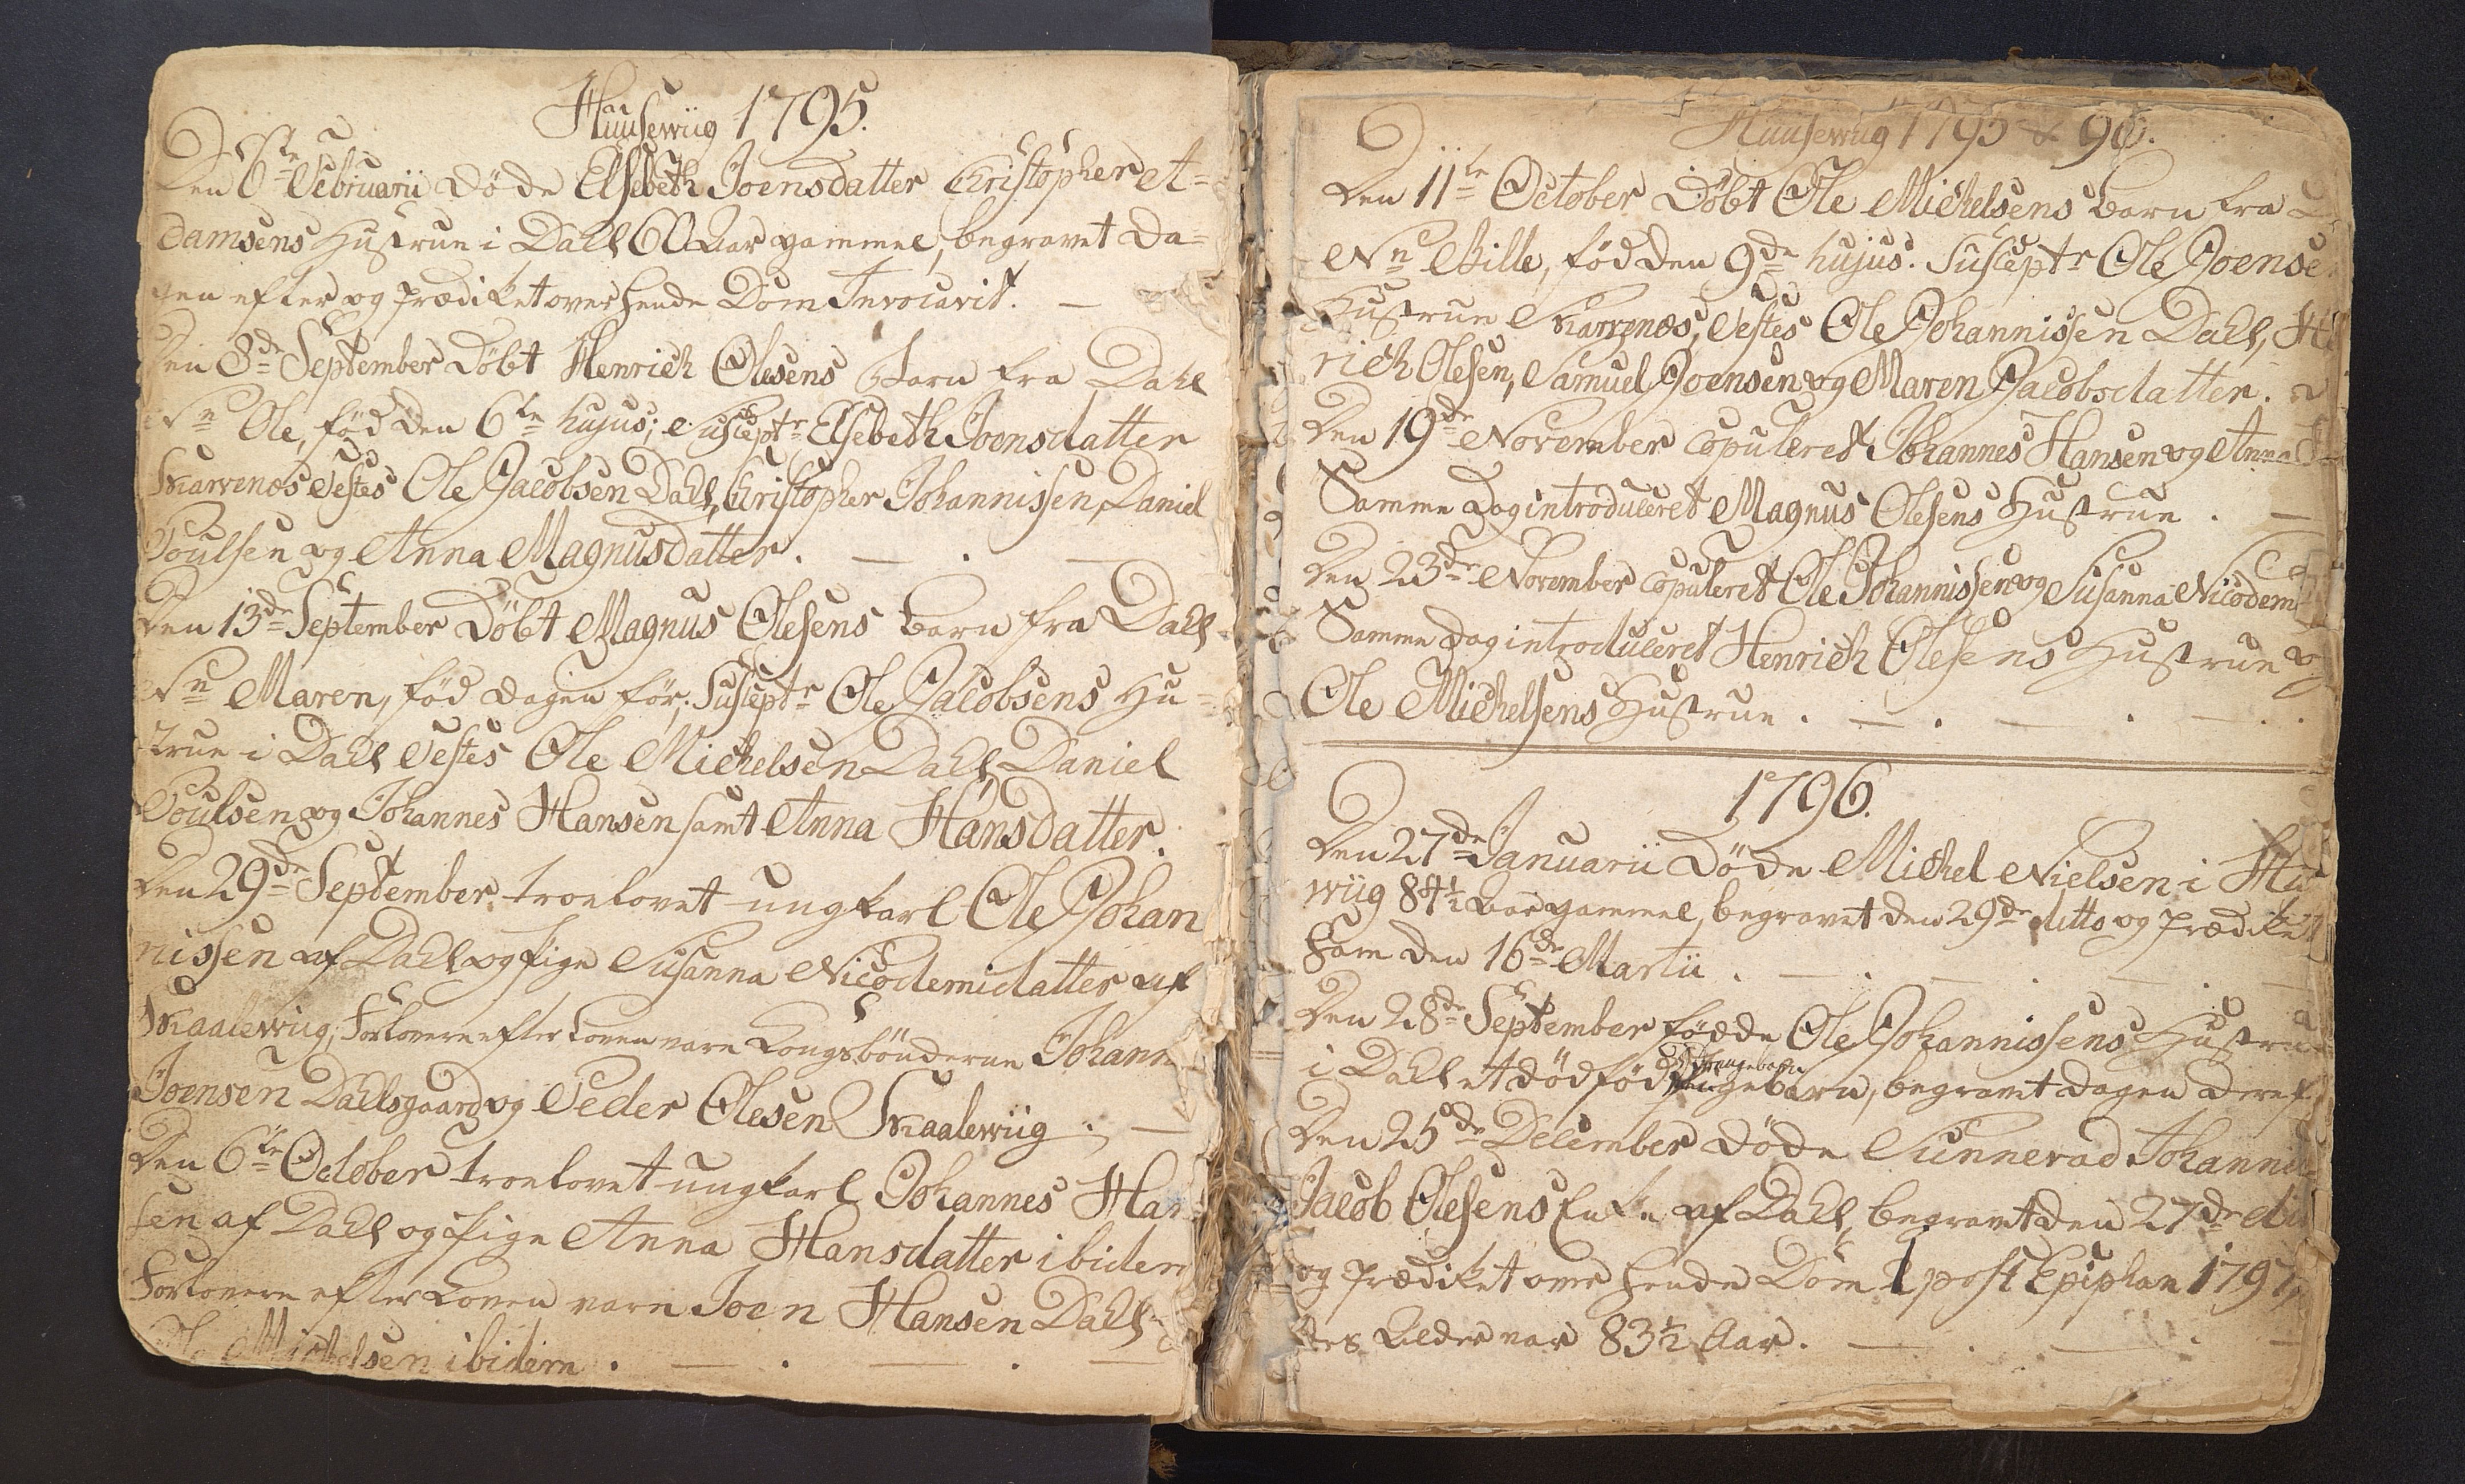 Huusewiig 1795.
Den 6te Februarii döde Elsebeth Joensdatter Christopher A-
damsens Hustrue i Dahl 60 Aar gammel, begravet Da-
gen efter og Prædiket over hende Dom Invocavit. —
Den 8de September döbt Henrich Olesens Barn fra Dahl
Nn Ole, föd den 6te hujus; Suscept: Elsebeth Joensdatter
Skarvenæs Testes Ole Jacobsen Dahl, Christopher Johannissen, Daniel
Poulsen og Anna Magnusdatter. — . —
Den 13de September döbt Magnus Olesens Barn fra Dahl
Nn Maren, föd dagen för; Suscept: Ole Jacobsens Hu-
strue i Dahl Testes Ole Michelsen Dahl, Daniel
Poulsen og Johannes Hansen samt Anna Hansdatter.
Den 29de September troelovet ungkarl Ole Johan
nissen af Dahl og Pige Susanna Nicodemidatter af
Skaalewiig, Forlovere efter Loven vare Kongsbönderne Johann
Joensen Dahlsgaard og Peder Olesen Skaalewiig. —
Den 6te October troelovet ungkarl Johannes Han
sen af Dahl og Pige Anna Hansdatter ibidem
Forlovere efter Loven vare Joen Hansen Dahl
Ole Michelsen ibidem . — . — . —
Huusewiig 1795 & 96.
Den 11te October Döbt Ole Michelsens Barn fra
Nn Bille, föd den 9de hujus. Suscept: Ole Joense
Hustrue Skarvenæs, Testes Ole Johannissen Dahl, He
rich Olesen, Samuel Joensen og Maren Jacobsdatter.
Den 19de November copuleret Johannes Hansen og Anna
Samme Dag introduceret Magnus Olesens Hustrue . —
Den 23de November copuleret Ole Johannissen og Susanna Nicodemi
Samme Dag introduceret Henrich Olesens Hustrue og
Ole Michelsens Hustrue . — . — . — .
1796.
Den 27de Januarii Döde Michel Nielsen i Hu
wiig 84½ Aar gammel, begravet den 29de ditto og Prædiket
ham den 16de Martii . — . — . —
Den 28de September födde Ole Johannissens Hustrue
i Dahl et dödföd Drengebarn, begravet dagen deref
Den 25de December döde Sunnevad Johannis
Jacob Olesens Enke af Dahl, begravet den 27de
og Prædiket over hende Dom 1 post Epiphan 1797,
des Alder var 83½ Aar. — . — . —